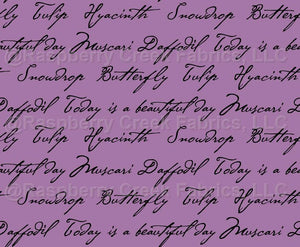 Tulip Hyacinth Snowdrop Butterfly
beautiful day Muscari Daffodil Today is a be
Snowdrop Butterfly Tulip Hyacinth
Daffodil Today is a beautiful day Muscari
©Raspberry Creek Fabrics, LLC
Tulip Hyacinth Snowdrop Butterfly
beautiful day Muscari Daffodil Today is a be
©Raspberry Creek Fabrics, LLC
Snowdrop Butterfly Tulip Hyacinth
Daffodil Today is a beautiful day Muscari